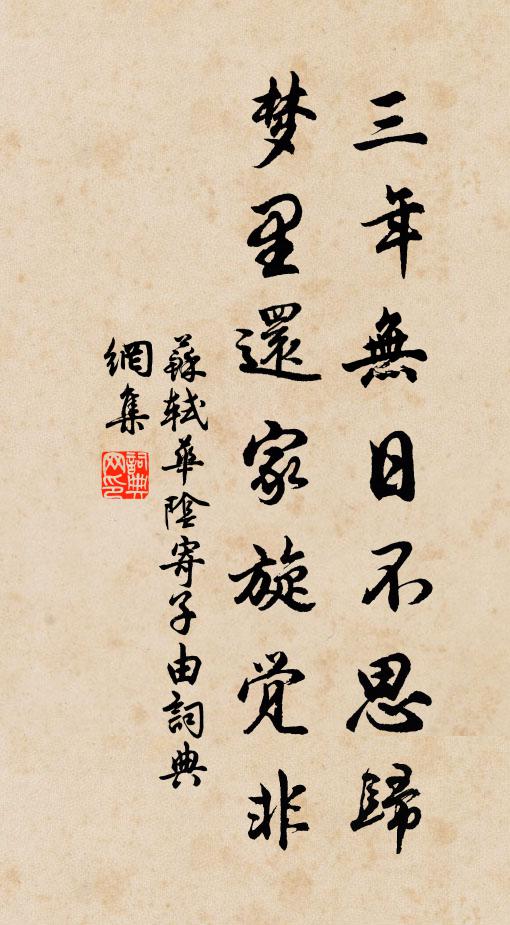 三年無日不思歸
梦里還家旋覚非
蘇軾華陰寄子由詞典
網集
詞典
网印